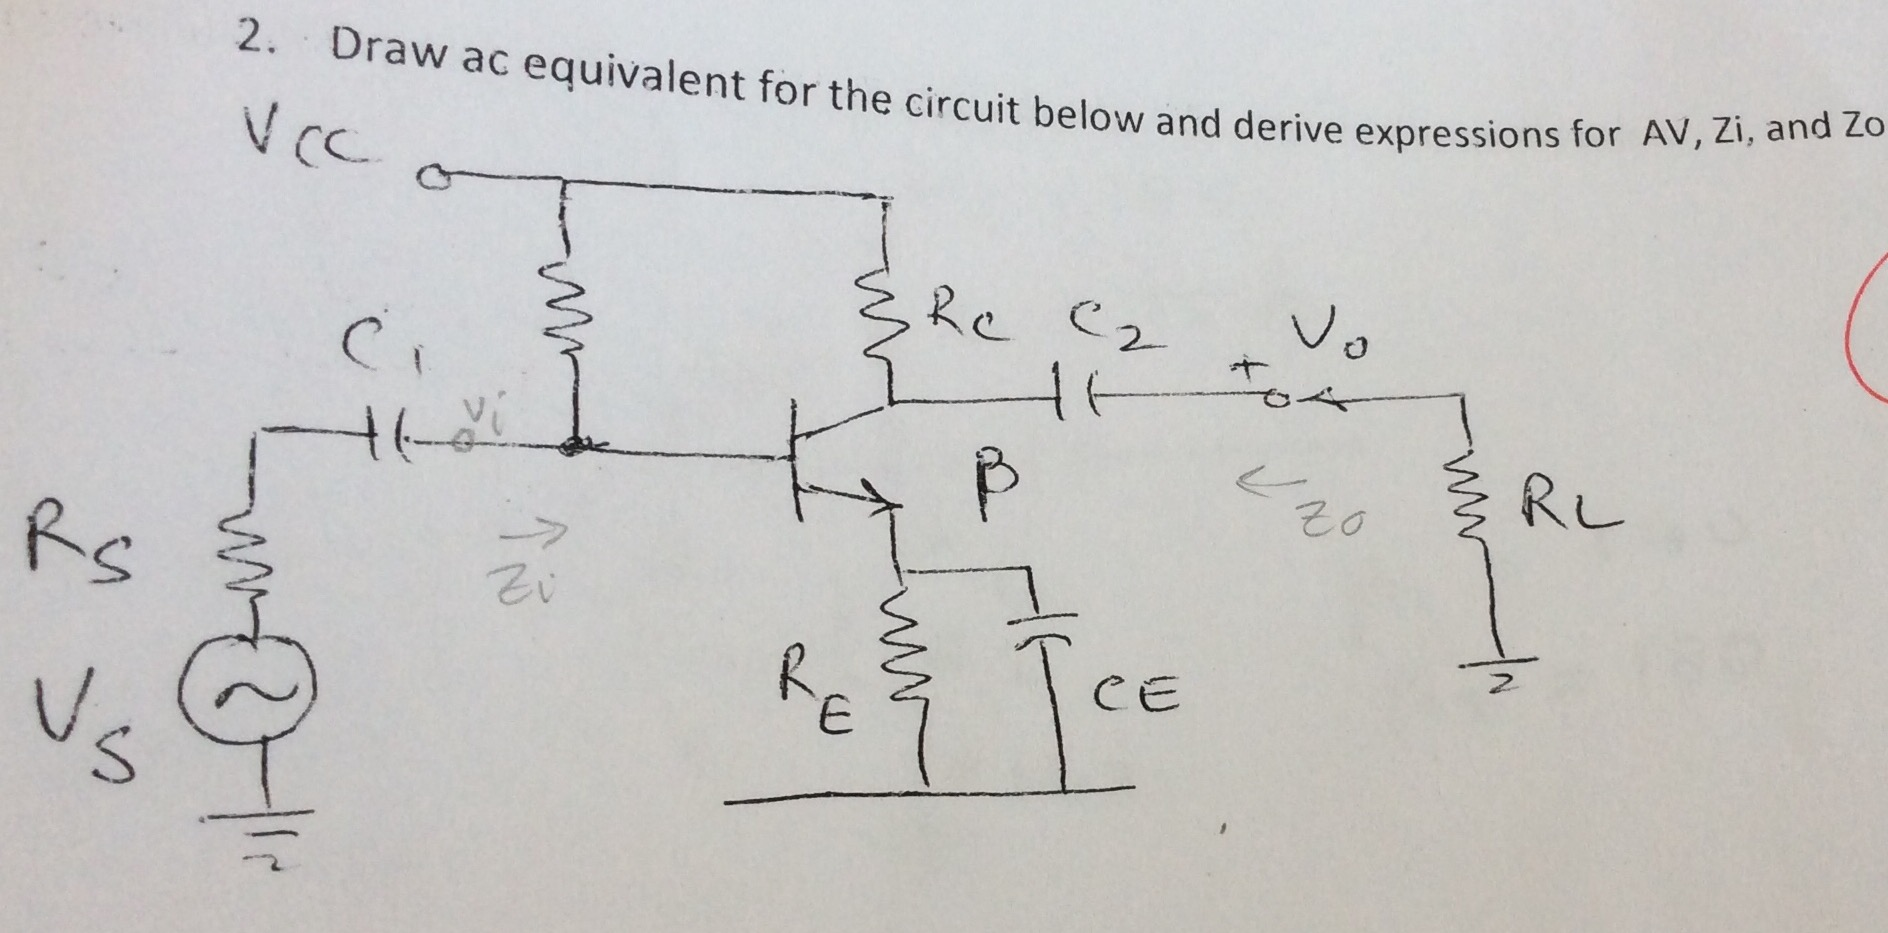 2. Draw ac equivalent for the circuit below and derive expressions for AV, Zi, and Zo
VCC
RC
C2
Vo
+
C1
Vi
β
RS
Zi
Zo
RL
RE
CE
VS